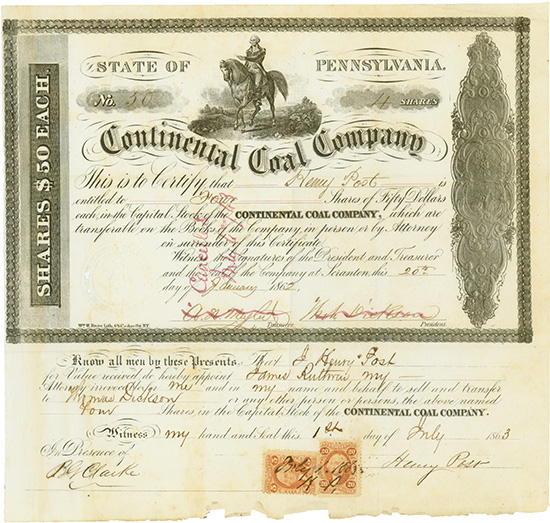 STATE OF PENNSYLVANIA.
No. 50 4 SHARES
Continental Coal Company
SHARES $50 EACH.
This is to Certify that Henry Post is
entitled to Four Shares of Fifty Dollars
each, in the Capital Stock of the CONTINENTAL COAL COMPANY, which are
transferable on the Books of the Company in person or by Attorney
on surrender of this Certificate.
Witness the Signatures of the President and Treasurer
and the Seal of the Company at Scranton, this 20th
day of January 1862
Cancelled
July
Treasurer President.
Know all men by these Presents, That I Henry Post
for Value received, do hereby appoint James my
Attorney irrevocable for me and in my name and behalf to sell and transfer
to Thomas Dickson or any other person or persons, the above named
Four Shares in the Capital Stock of the CONTINENTAL COAL COMPANY.
Witness my hand and Seal this 1st day of July 1863
In Presence of
Clarke Henry Post
July 1